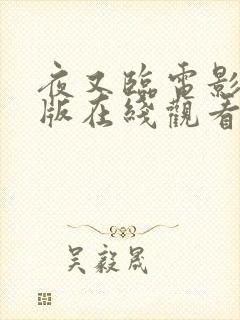 夜叉臨電影
版在綫觀看
吴毅晟